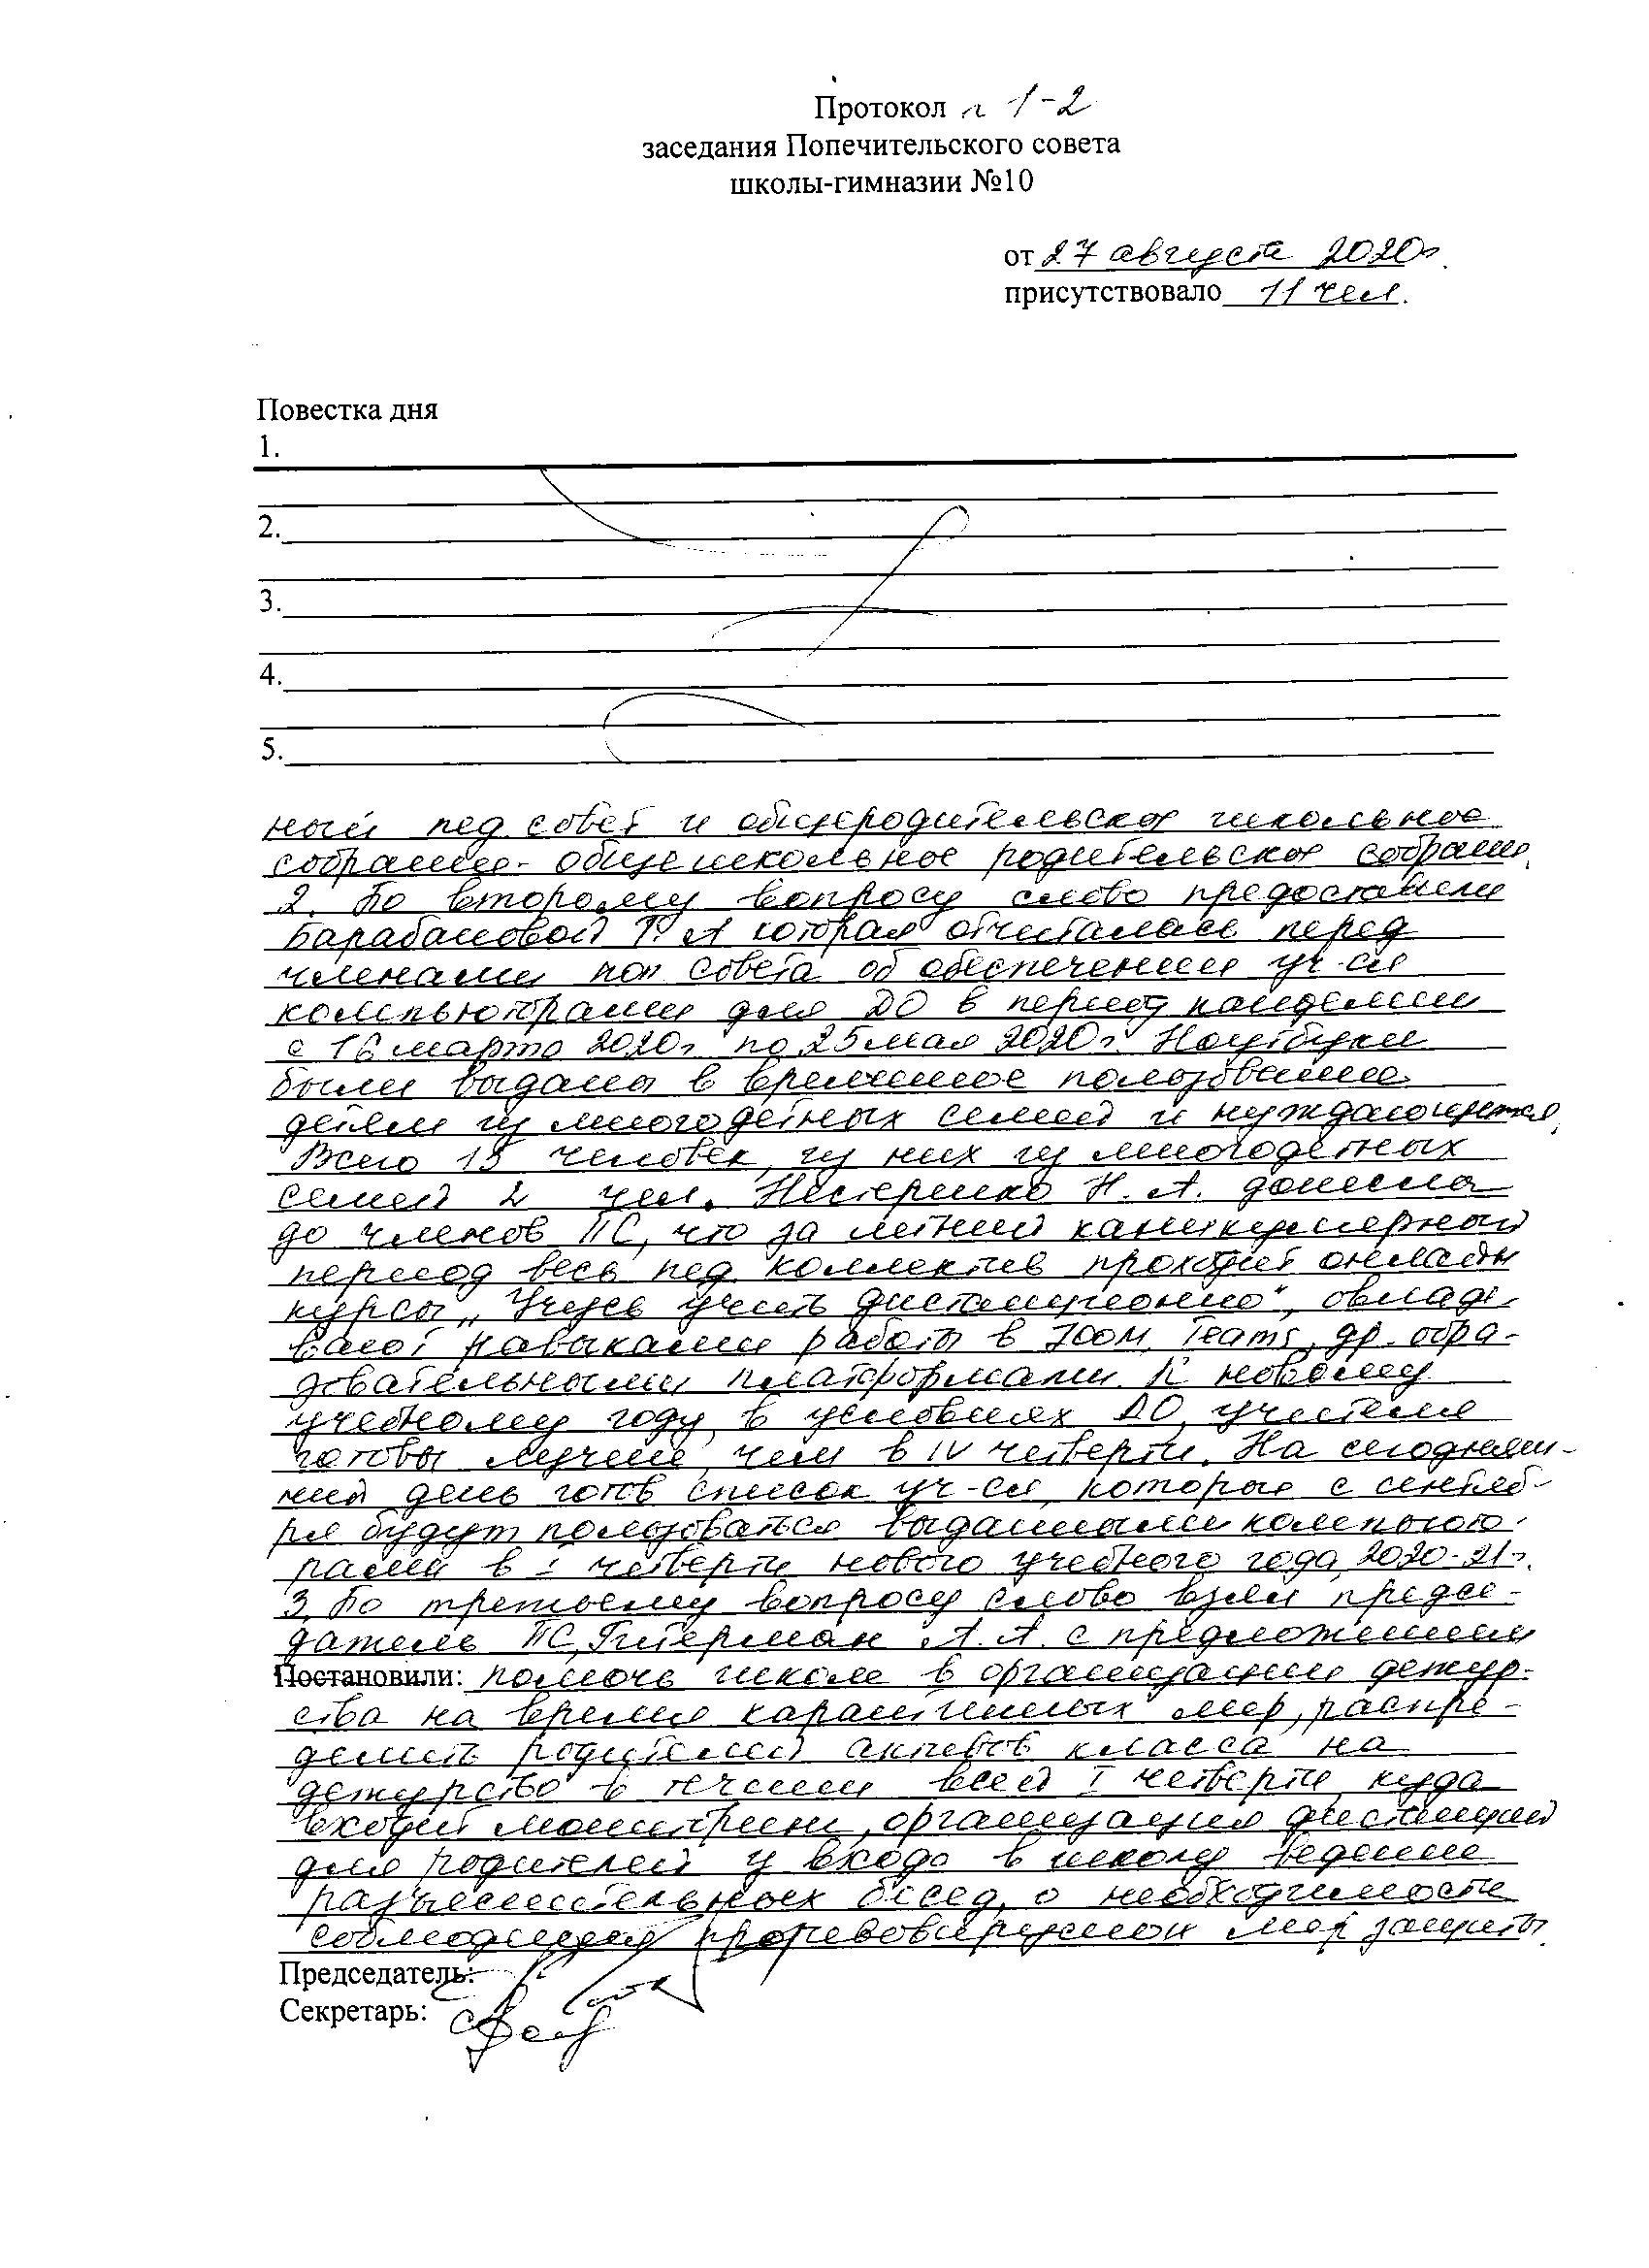 Протокол № 1-2
заседания Попечительского совета
школы-гимназии №10
от 27 августа 2020г.
присутствовало 11 чел.
Повестка дня
1.
2.
3.
4.
5.
ный пед совет и общеродительское школьное
собрание - общешкольное родительское собрание.
2. По второму вопросу слово предоставили
Барабановой Г. А которая отчиталась перед
членами поп совета об обеспечении уч-ся
компьютрами для ДО в период пандемии
с 16 марта 2020г по 25 мая 2020г. Ноутбуки
были выданы в временное пользование
детям из многодетных семей и нуждающимся.
Всего 15 человек, из них из многодетных
семей 2 чел. Нестеренко Н. А. донесла
до членов ПС, что за летний каникулярный
период весь пед коллектив проходит онлайн
курсы „Учусь учить дистанционно", овладе
вают навыками работы в ZOOM, Teams, др. обра-
зовательными платформами. К новому
учебному году в условиях ДО, учителя
готовы лучше, чем в IV четверти. На сегодняш-
ний день готов список уч-ся, которые с сентяб-
ря будут пользоваться выданными компьют-
рами в I четверти нового учебного года 2020-21г.
3. По третьему вопросу слово взял предсе-
датель ПС, Гитерман А. А. с предложением
Постановили: помочь школе в организации дежур-
ства на время карантинных мер, распре-
делить родителей активов класса на
дежурство в течении всей I четверти, куда
входит мониторинг, организация дистанций
для родителей у входа в школу ведение
разъяснительных бесед, о необходимости
соблюдения противовирусных мер защиты.
Председатель:
Секретарь: